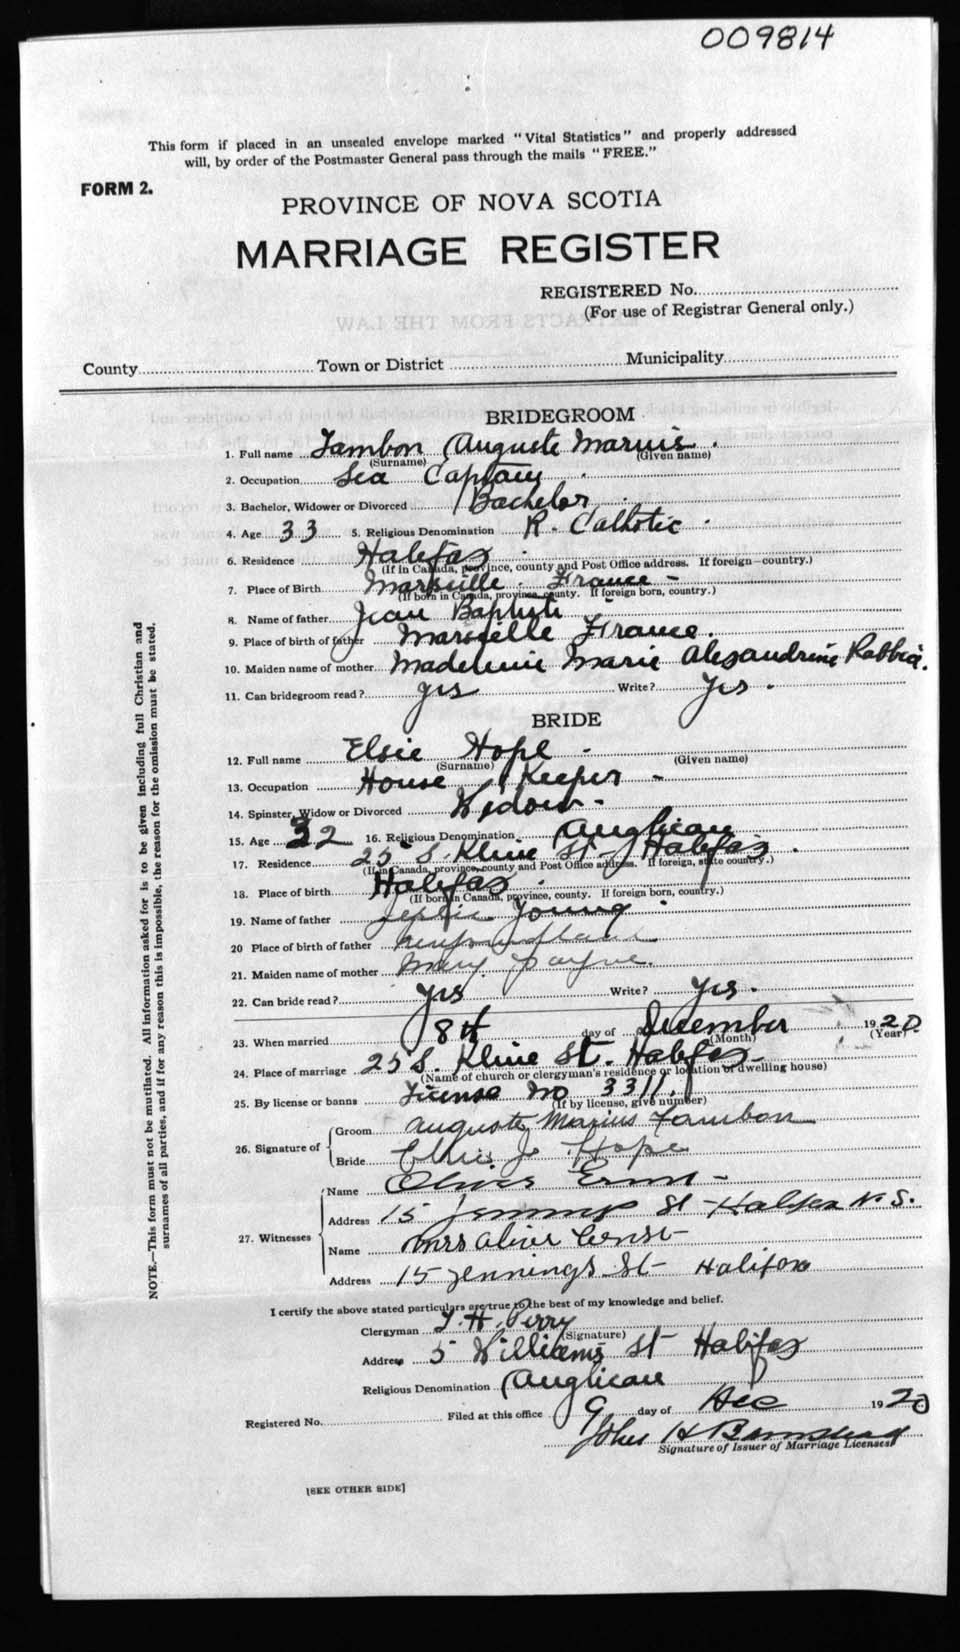 009814
This form if placed in an unsealed envelope marked "Vital Statistics" and properly addressed
will, by order of the Postmaster General pass through the mails "FREE."
FORM 2.
PROVINCE OF NOVA SCOTIA
MARRIAGE REGISTER
REGISTERED No.
(For use of Registrar General only.)
County Town or District Municipality
BRIDEGROOM
1. Full name Tambon Auguste Marius
(Surname) (Given name)
2. Occupation Sea Captain
3. Bachelor, Widower or Divorced Bachelor
4. Age 33 5. Religious Denomination R. Catholic
6. Residence Halifax
(If in Canada, province, county and Post Office address. If foreign—country.)
7. Place of Birth Marseille France
(If born in Canada, province, county. If foreign born, country.)
8. Name of father Jean Baptiste
9. Place of birth of father Marseille France.
10. Maiden name of mother Madeleine Marie Alexandrine
11. Can bridegroom read? yes Write? Yes.
BRIDE
12. Full name Elsie Hope
(Surname) (Given name)
13. Occupation House Keeper
14. Spinster, Widow or Divorced Widow
15. Age 32 16. Religious Denomination Anglican
17. Residence 25 S. Kline St Halifax
(If in Canada, province, county and Post Office address. If foreign, state country.)
18. Place of birth Halifax
(If born in Canada, province, county. If foreign born, country.)
19. Name of father Young
20 Place of birth of father Newfoundland
21. Maiden name of mother Mary Payne.
22. Can bride read? yes Write? yes.
23. When married 8th day of December 1920
(Month) (Year)
24. Place of marriage 25 S. Kline St. Halifax
(Name of church or clergyman's residence or location of dwelling house)
25. By license or banns License No 3311.
(If by license, give number)
26. Signature of
Groom Auguste Marius Tambon
Bride Elsie J. Hope
27. Witnesses
Name Oliver Ernst
Address 15 Jennings St Halifax N.S.
Name Mrs Oliver Ernst
Address 15 Jennings St Halifax
I certify the above stated particulars are true to the best of my knowledge and belief.
Clergyman T. H. Perry
(Signature)
Address 5 Williams St Halifax
Religious Denomination Anglican
Registered No. Filed at this office 9 day of Dec 1920
John H Barnstead
Signature of Issuer of Marriage Licenses
[SEE OTHER SIDE]
NOTE.—This form must not be mutilated. All information asked for is to be given including full Christian and
surnames of all parties, and if for any reason this is impossible, the reason for the omission must be stated.